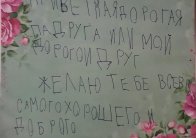 ПРИВЕТ МАЯ ДОРОГАЯ
ПАДРУГА ИЛИ МОЙ
ДОРОГОЙ ДРУГ
ЖЕЛАЮ ТЕБЕ ВСЕВО
САМОГО ХОРОШЕГО И
ДОБРОГО